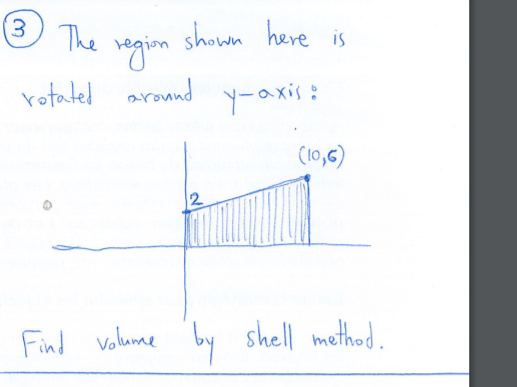 ③ The region shown here is
rotated around y-axis:
(10,6)
2
Find volume by shell method.